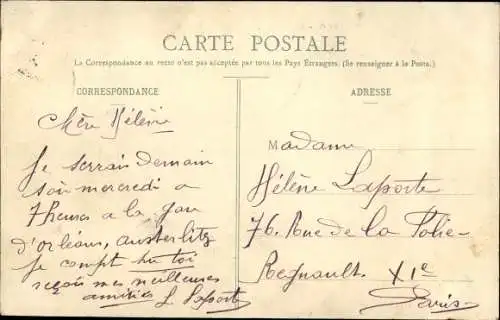 CARTE POSTALE
La Correspondance au recto n'est pas acceptée par tous les Pays Étrangers. (Se renseigner à la Poste.)
CORRESPONDANCE
Chère Hélène
Je serrais demain
soir mercredi a
7 heures a la gare
d'orléans, austerlitz
Je compt sur toi
reçois mes meilleures
amitiés L Laporte
ADRESSE
Madame
Hélène Laporte
76 Rue de la Folie
Regnault. XIe
Paris